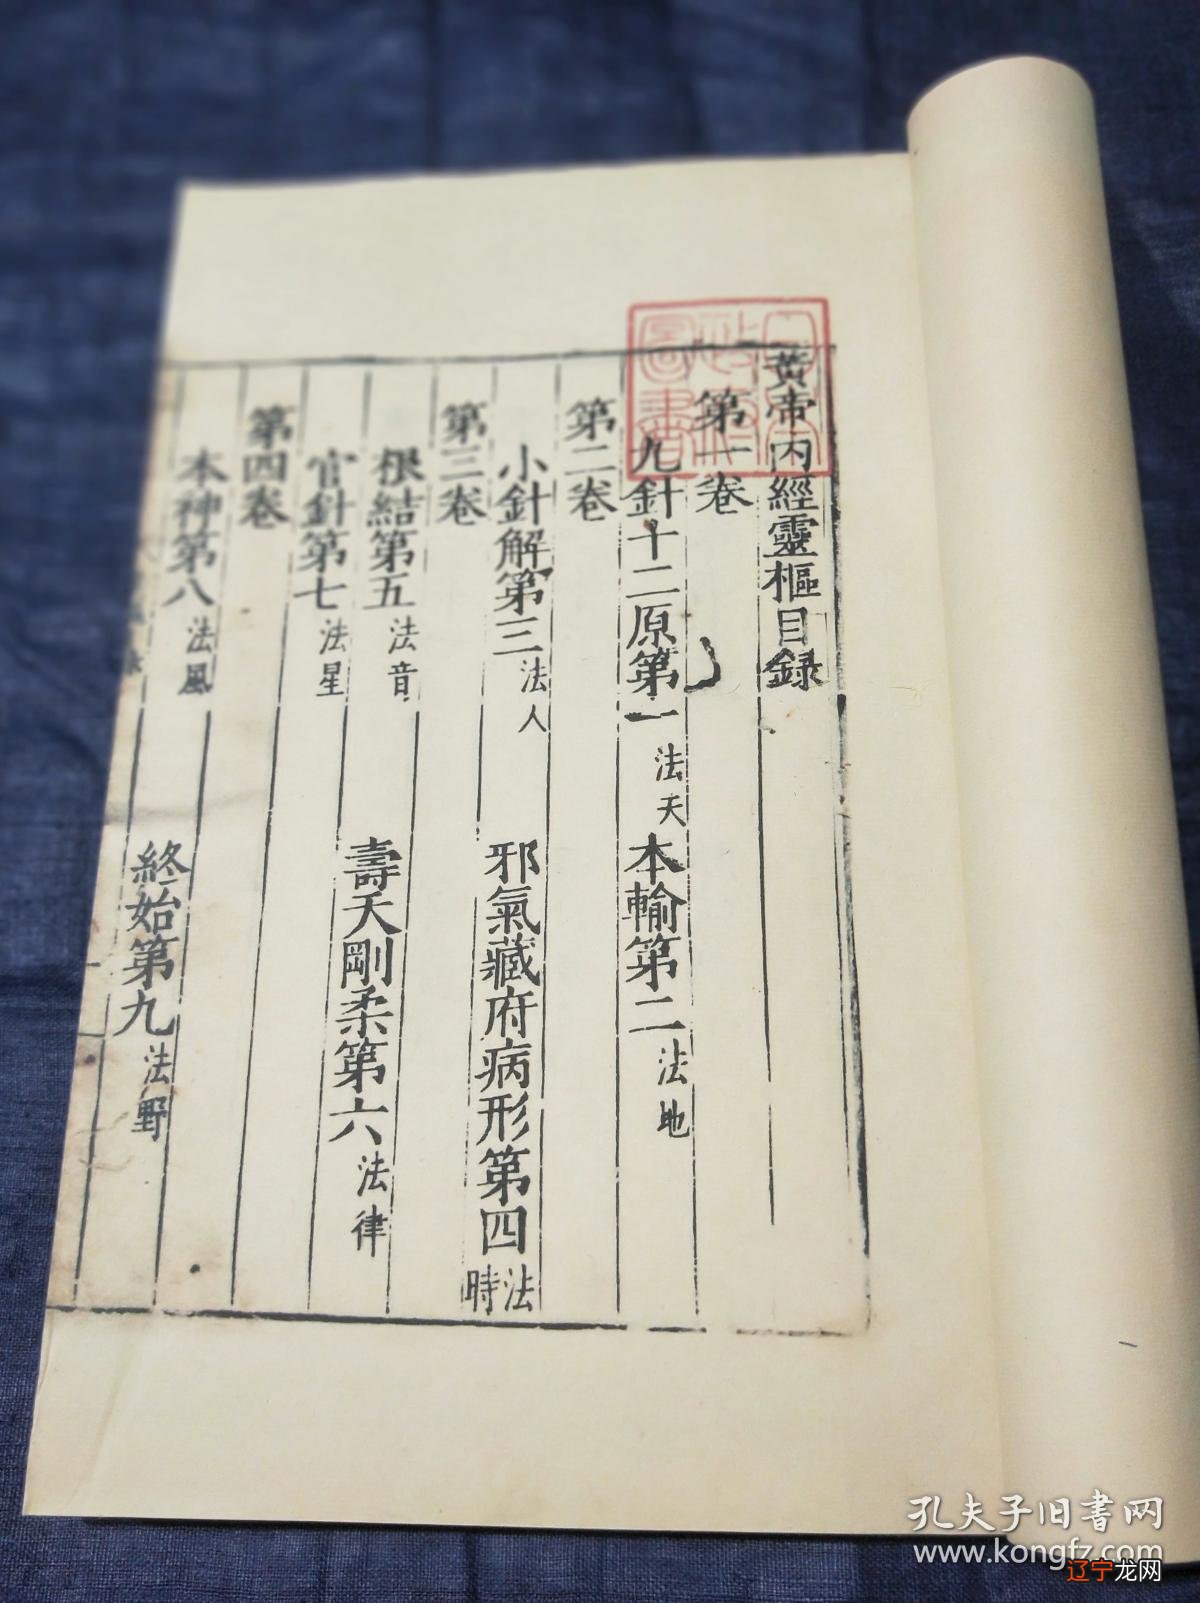 黄帝内經靈樞目録
第一卷
九針十二原第一 法天 本輸第二 法地
第二卷
小針解第三 法人 邪氣藏府病形第四 法時
第三卷
根結第五 法音 壽夭剛柔第六 法律
官針第七 法星
第四卷
本神第八 法風 終始第九 法野
圖書
孔夫子旧书网
www.kongfz.com
辽宁龙网